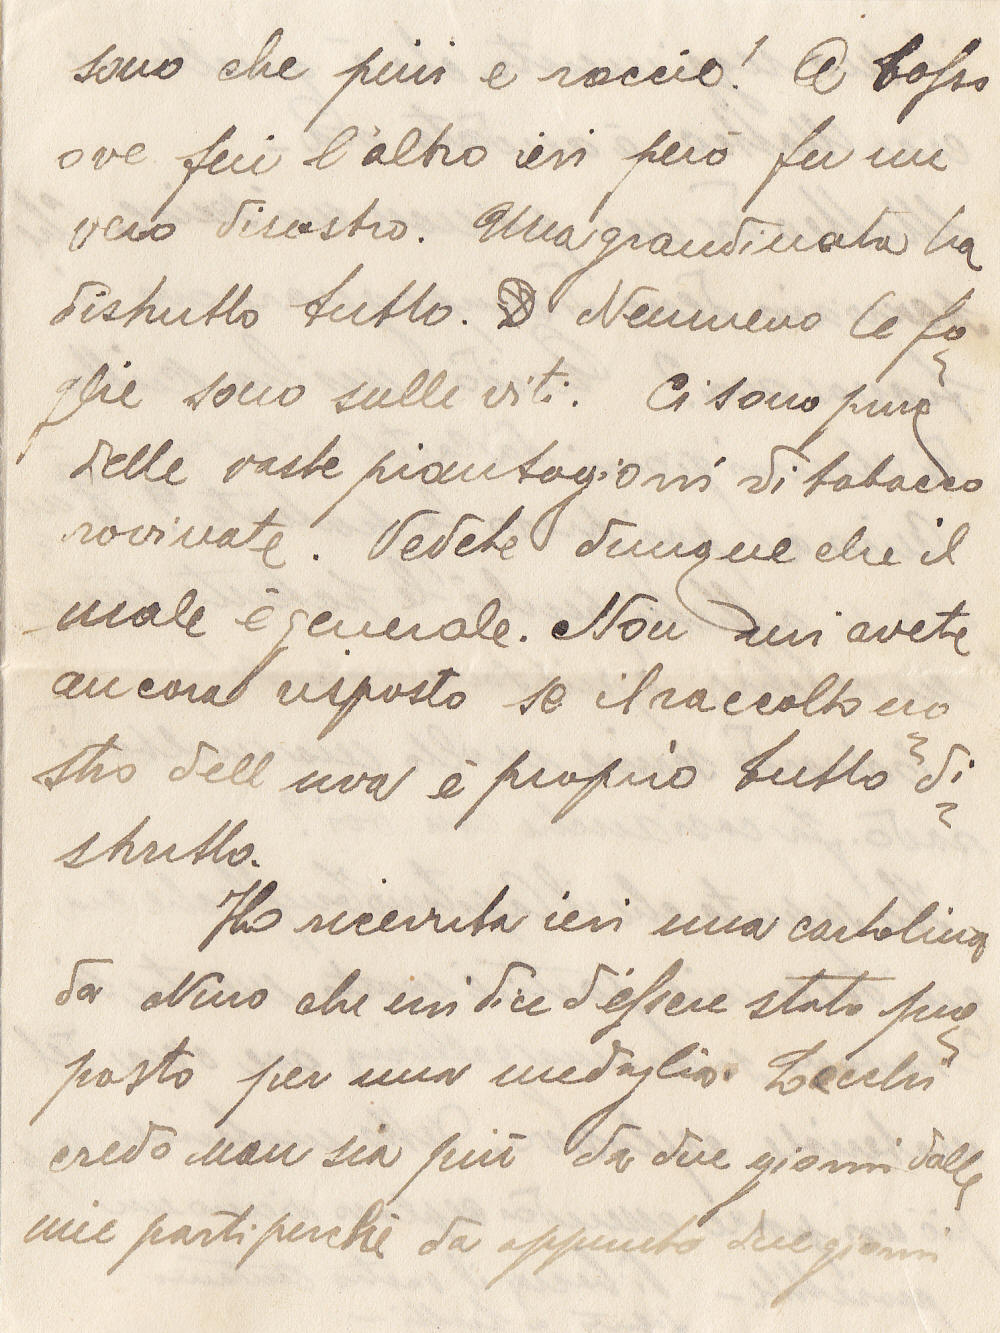 sono che pini e roccie! A Cosso
ove fui l'altro ieri però fu un
vero disastro. Una grandinata ha
distrutto tutto. Nemmeno le fo
glie sono sulle viti. Ci sono pure
delle vaste piantagioni di tabacco
rovinate. Vedete dunque che il
male è generale. Non mi avete
ancora risposto se il raccolto no
stro dell uva è proprio tutto di
strutto.
Ho ricevuta ieri una cartolina
da Nino che mi dice d'essere stato pro
posto per una medaglia.
credo non sia più da due giorni dalle
mie parti perchè da appunto due giorni